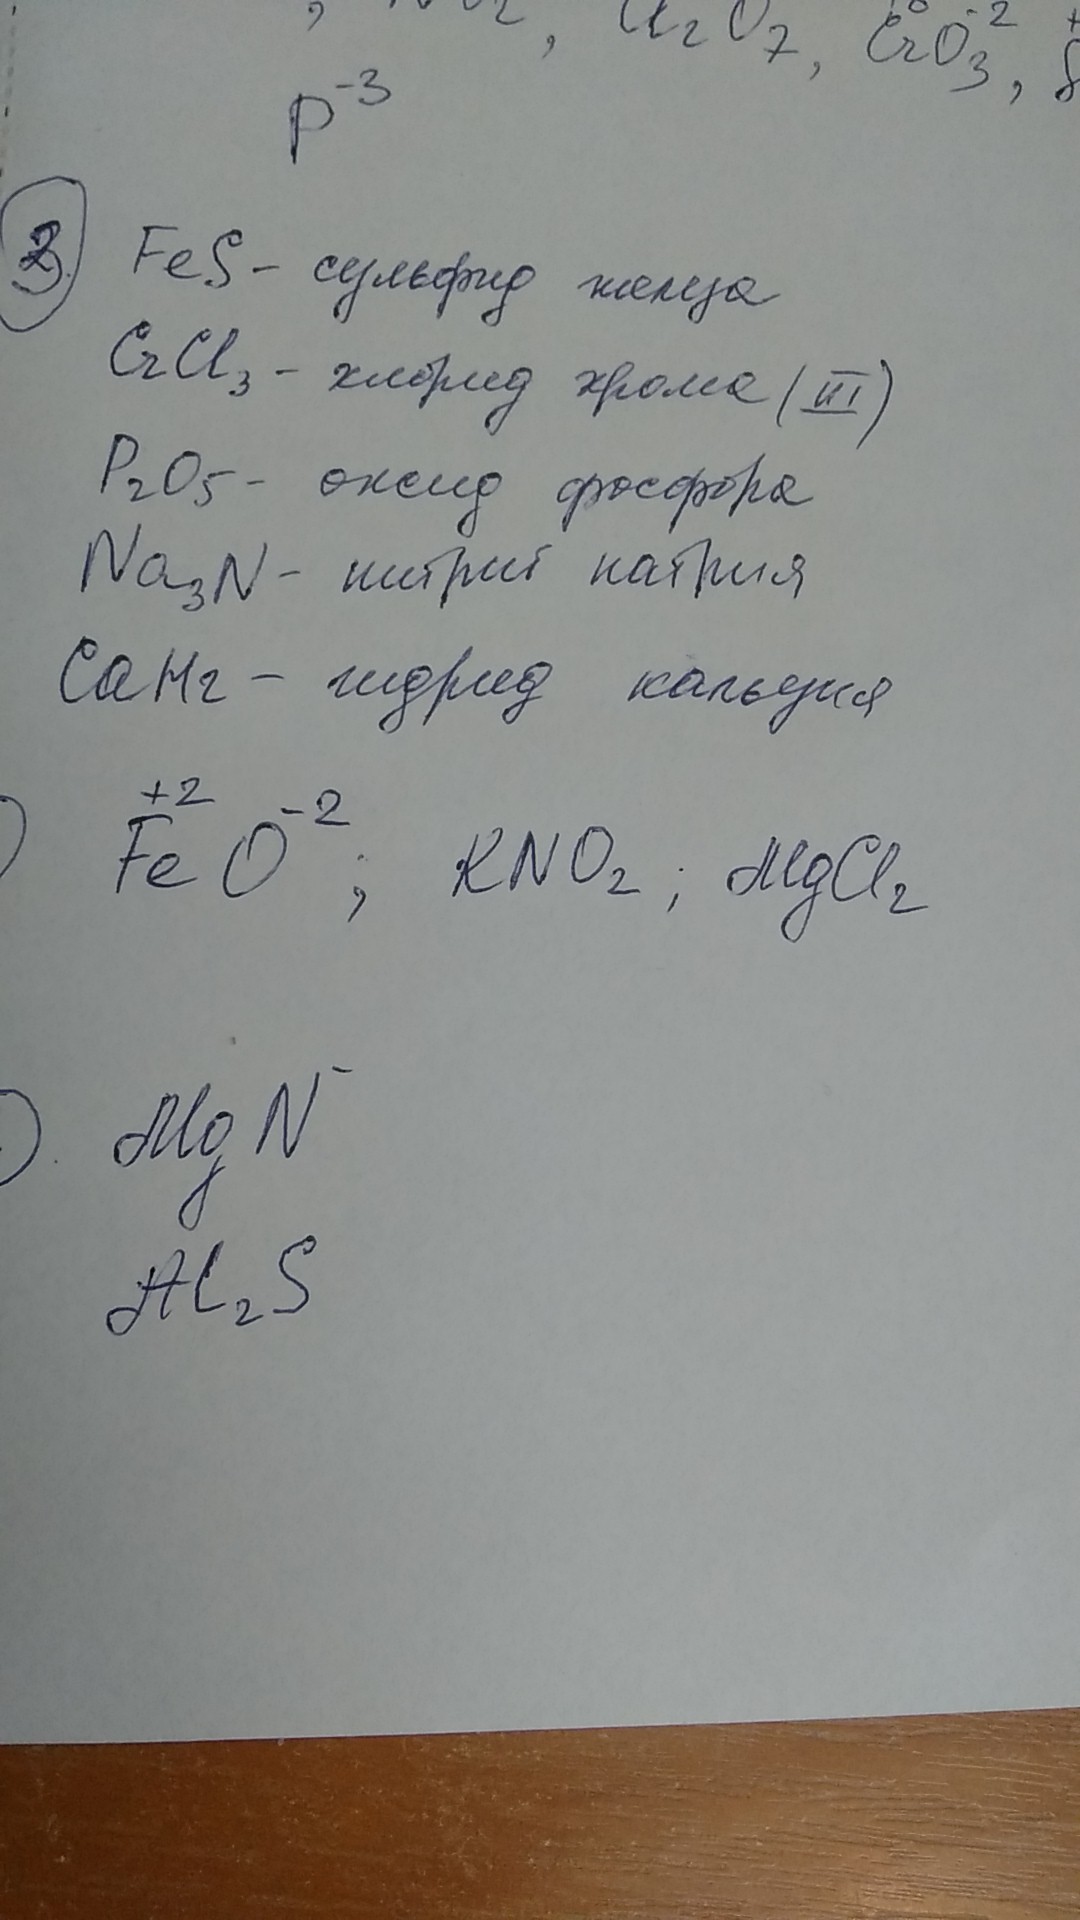 , NO2, Cl2O7, CrO3 -2,
P-3
3. FeS - сульфид железа
CrCl3 - хлорид хрома (III)
P2O5 - оксид фосфора
Na3N - нитрит натрия
CaH2 - гидрид кальция
+2 -2
FeO; KNO2; MgCl2
MgN-
Al2S